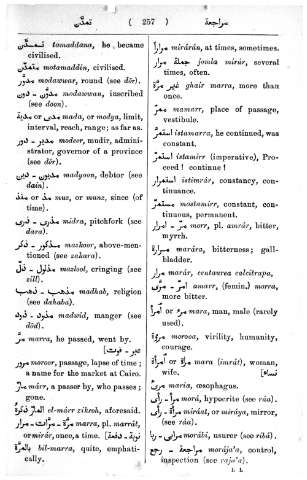 تمدّن ( 257 ) مراجعة
تمدّن tamaddana, he became
civilised.
متمدّن motamaddin, civilised.
مدوّر modawwar, round (see dôr).
مدوّن - دون modawwan, inscribed
(see doon).
مدّة or مدية mada, or modya, limit,
interval, reach, range; as far as.
مدير - دور modeer, mudir, admini-
strator, governor of a province
(see dôr).
مديون - دين madyoon, debtor (see
dain).
مذ or منذ muz, or munz, since (of
time).
مذرى - ذرى midra, pitchfork (see
dara).
مذكور - ذكر mazkoor, above-men-
tioned (see zakara).
مذلول - ذلّ mazlool, cringing (see
zill).
مذهب - ذهب madhab, religion
(see dahaba).
مذود - ذود madwid, manger (see
dôd).
مرّ marra, he passed, went by.
مرور moroor, passage, lapse of time;
a name for the market at Cairo.
مارّ márr, a passer by, who passes;
gone.
المارّ ذكره el-márr zikroh, aforesaid.
مرّة - مرّات - مرار marra, pl. marrát,
or mirár, once, a time. [نوبة - دفعة]
بالمرّة bil-marra, quite, emphati-
cally.
مرارا mirárán, at times, sometimes.
جملة مرار jomla mirár, several
times, often.
غير مرّة ghair marra, more than
once.
ممرّ mamarr, place of passage,
vestibule.
استمرّ istamarra, he continued, was
constant.
استمرّ istamirr (imperative), Pro-
ceed! continue!
استمرار istimrár, constancy, con-
tinuance.
مستمرّ mostamirr, constant, con-
tinuous, permanent.
مرّ - امرار morr, pl. amrár, bitter,
myrrh.
مرارة marára, bitterness; gall-
bladder.
مرار marár, centaurea calcitrapa.
امرّ - مرّى amarr, (femin.) morra,
more bitter.
امرأ or مرء mara, man, male (rarely
used).
مروة morooa, virility, humanity,
courage.
امرأة or مرة mara (imrát), woman,
wife. [نساء]
مرىء maria, œsophagus.
مراء - رأى morá, hypocrite (see ráa).
مرأة - رأى miráat, or miráya, mirror,
(see ráa).
مرابى - ربا morábi, usurer (see ribá).
مراجعة - رجع morája'a, control,
inspection (see raja'a).